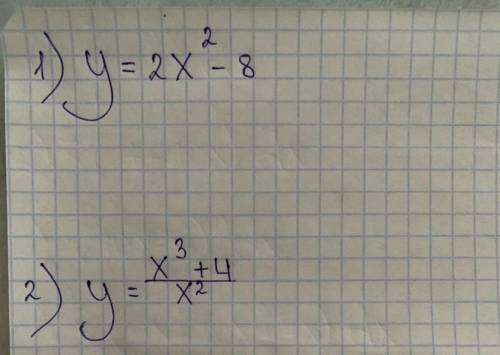 1) y = 2x² - 8
2) y = (x³ + 4)/x²